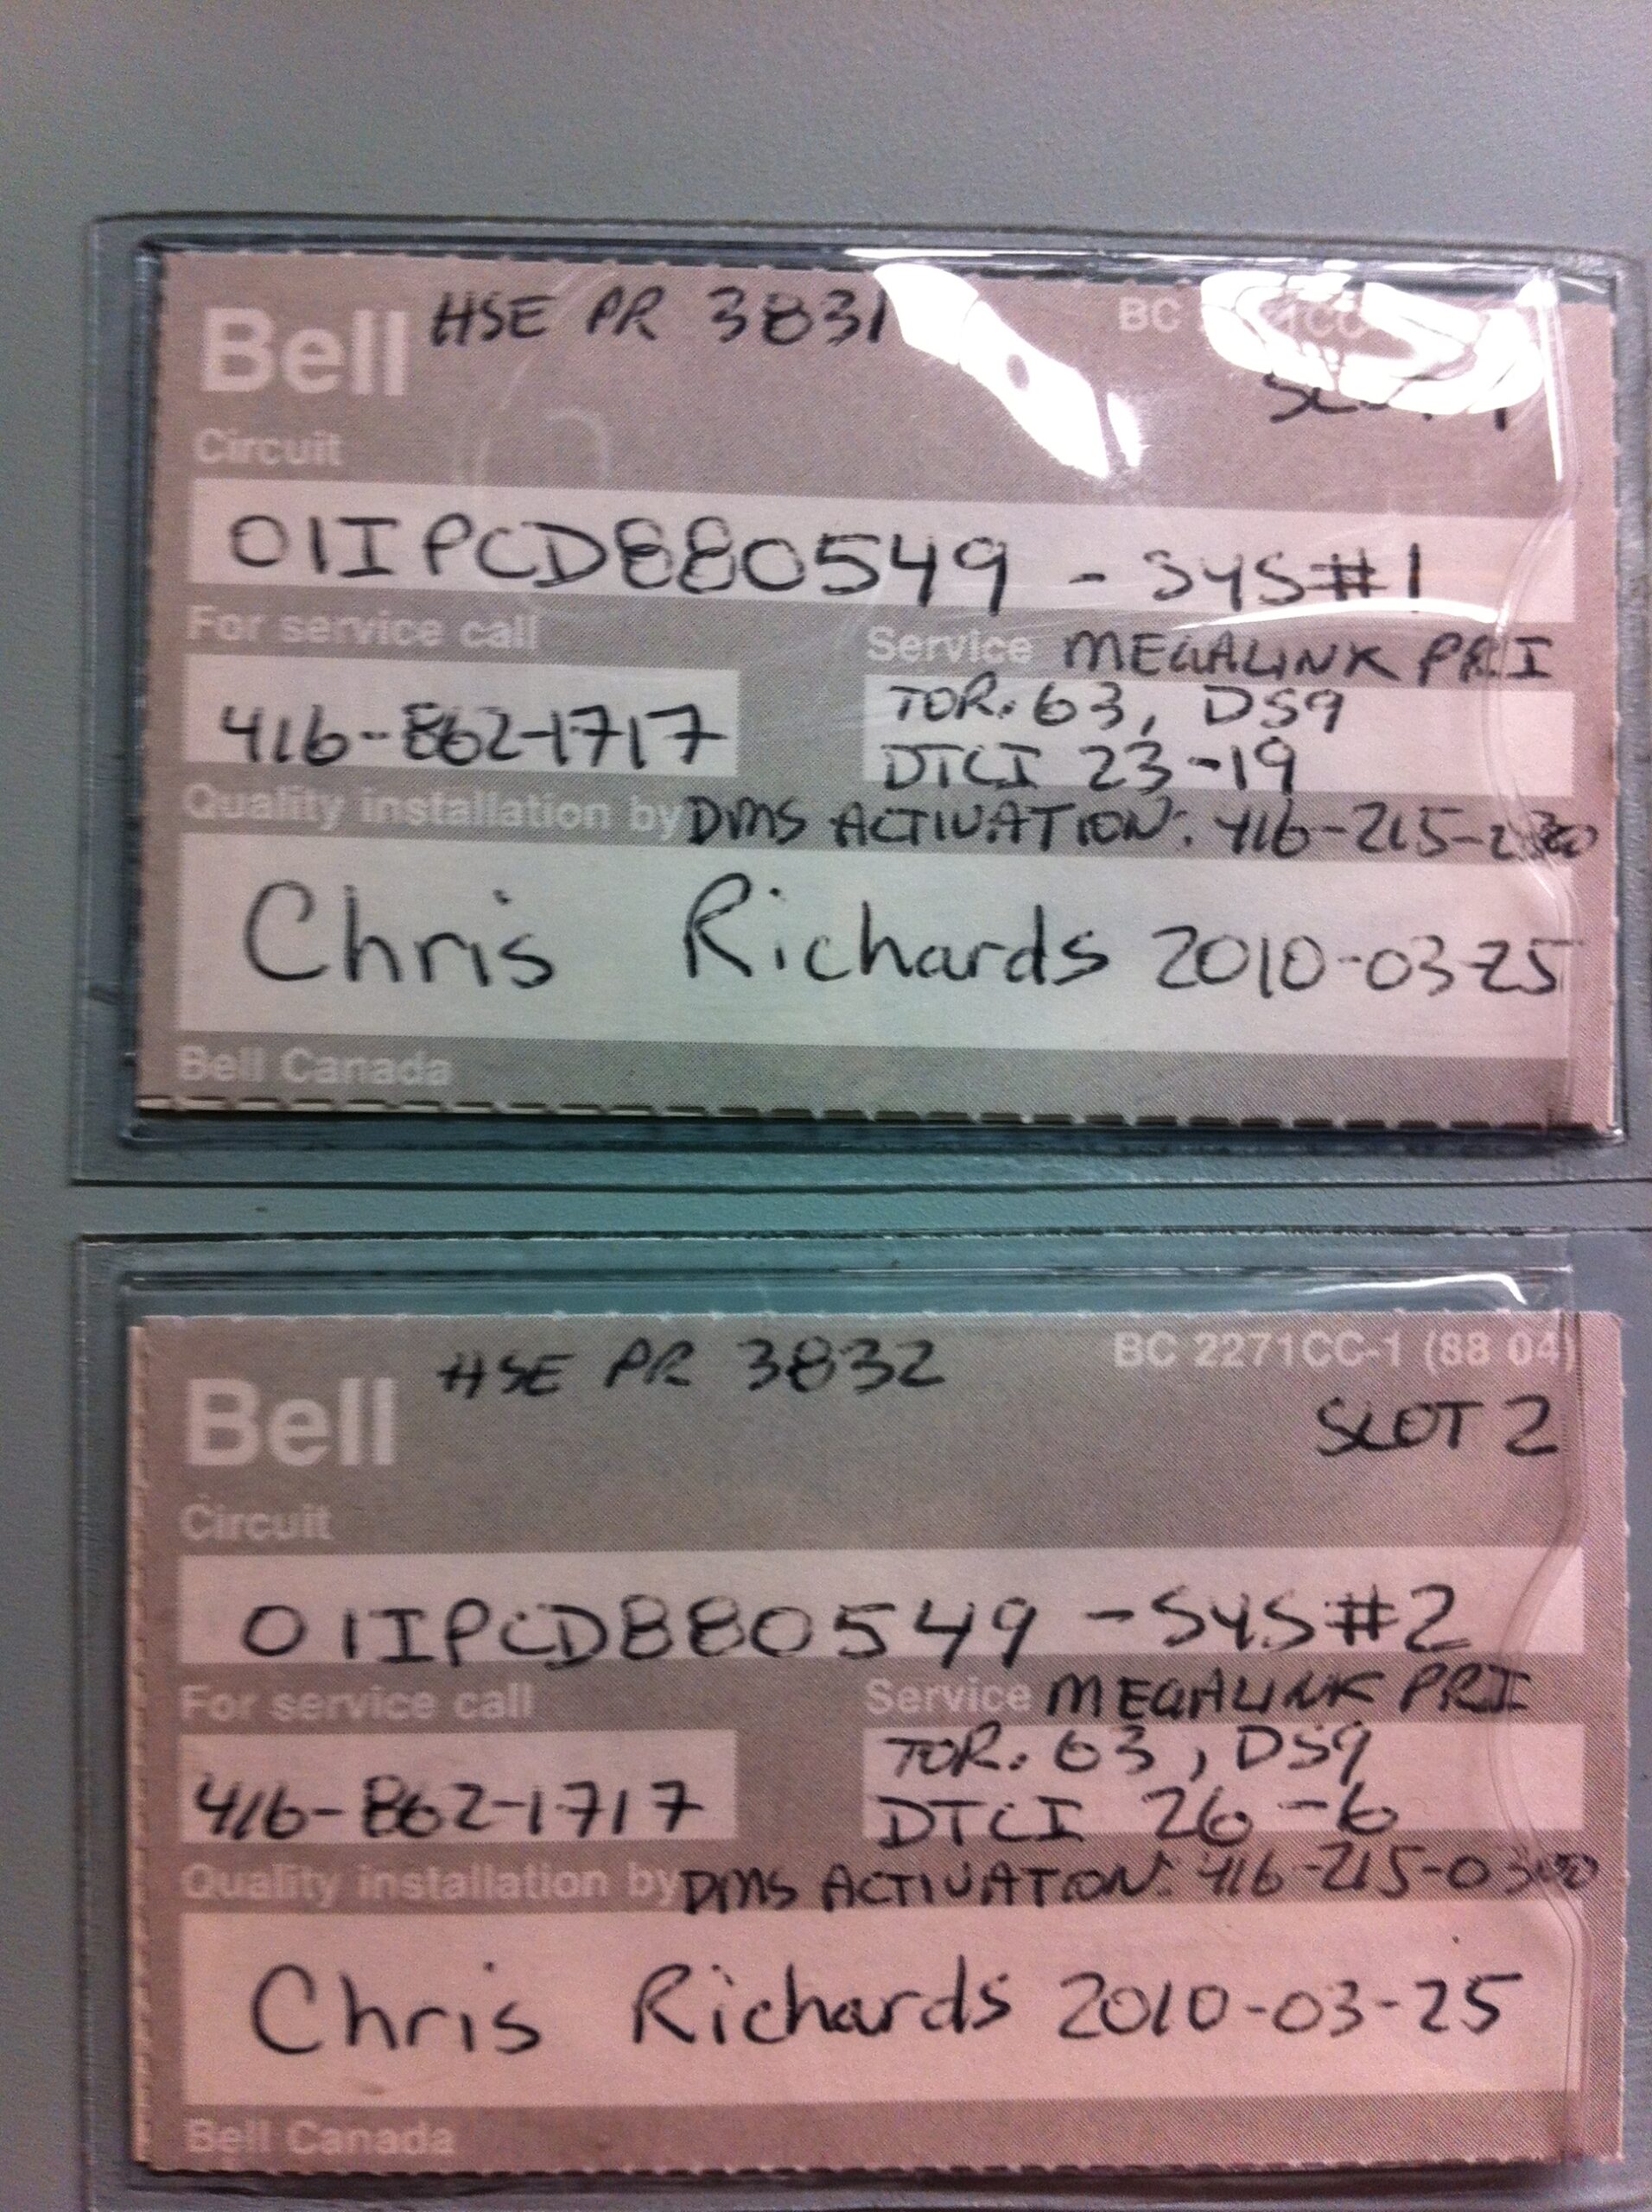 Bell HSE PR 3831 BC
SLOT 1
Circuit
01IPCD880549 - SYS#1
For service call Service MEGALINK PRI
416-862-1717 TOR. 63, DS9
DTCI 23-19
Quality installation by DMS ACTIVATION: 416-215-
Chris Richards 2010-03-25
Bell Canada
Bell HSE PR 3832 BC 2271CC-1 (88 04)
SLOT 2
Circuit
01IPCD880549 - SYS#2
For service call Service MEGALINK PRI
416-862-1717 TOR. 63, DS9
DTCI 26-6
Quality installation by DMS ACTIVATION: 416-215-
Chris Richards 2010-03-25
Bell Canada